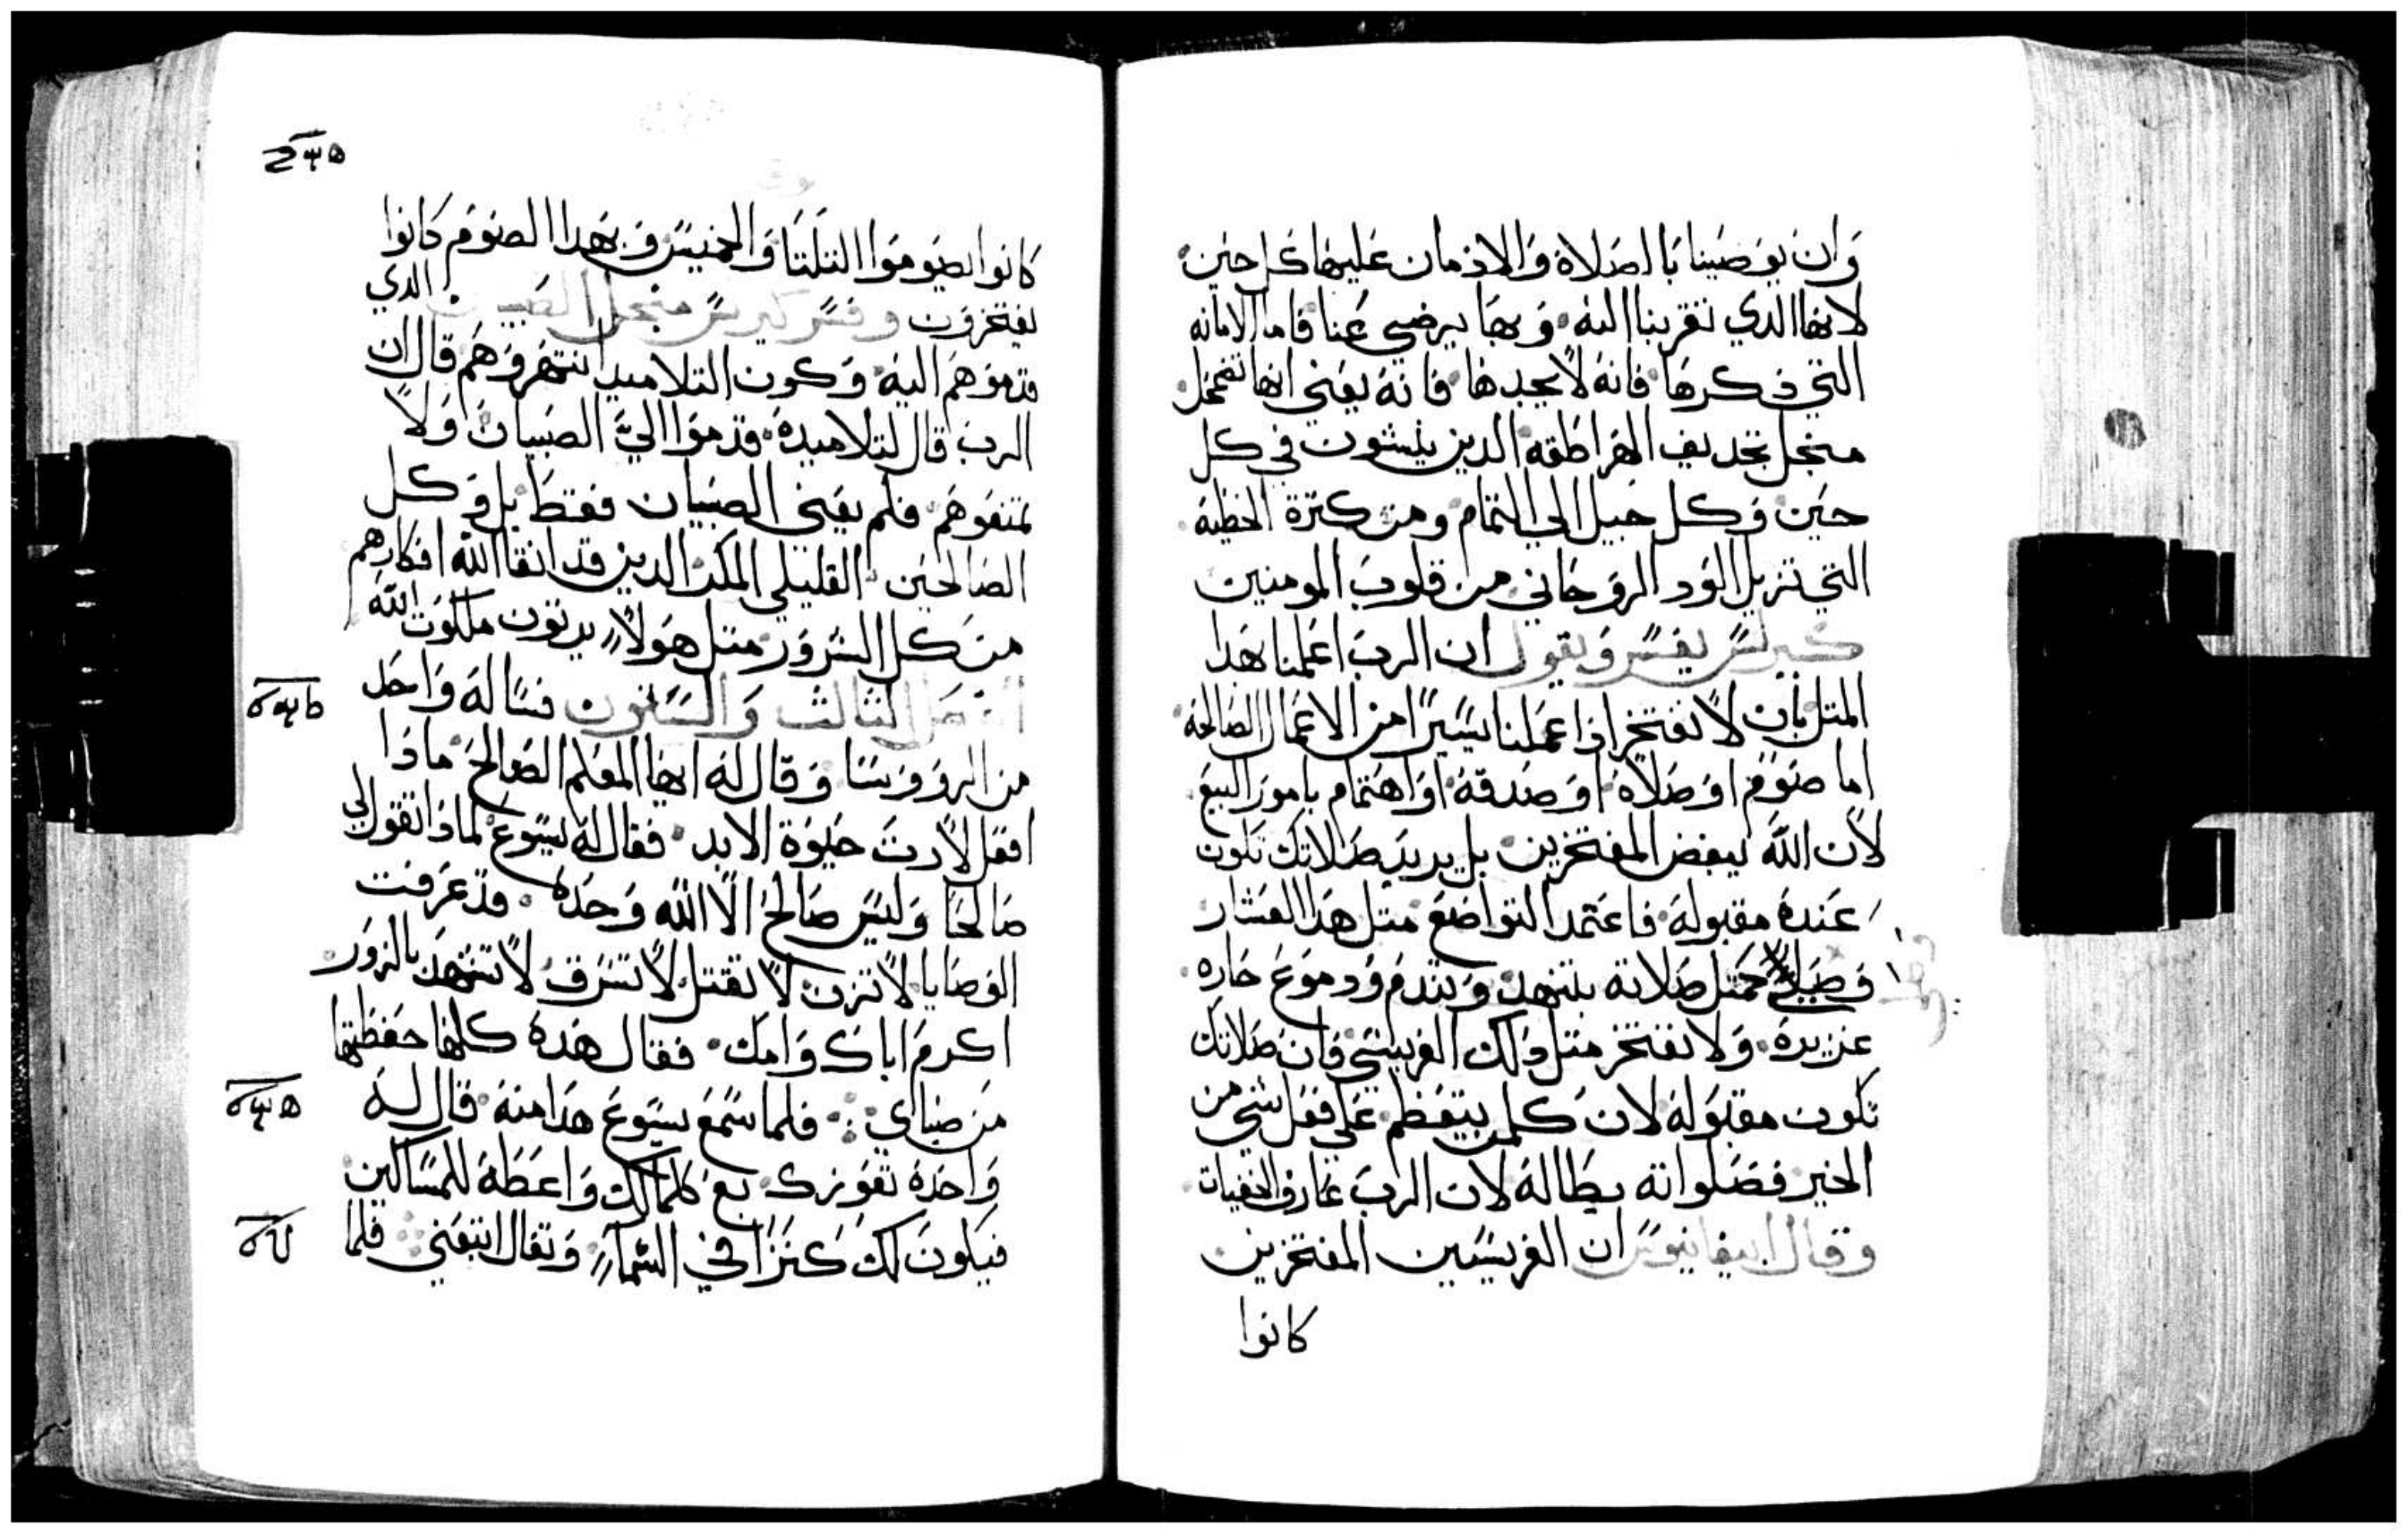 وان يوصينا بالصلاة والادمان عليها كل حين
لانها الدي تقربنا اليه وبها يرضي عنا فاما الامانه
التي ذكرها فانه لا يجدها فانه يعني انها تضمحل
منجل تجديف الهراطقه الدين ينشون في كل
حين وكل جيل الي التمام ومن كترة الخطيه
التي تزيل الود الروحاني من قلوب المومنين
كيرلس يفسر ويقول ان الرب اعلمنا بهدا
المتل بان لا نفتخر اذا عملنا يسيرا من الاعمال الصالحه
اما صوم او صلاة او صدقة او اهتمام بامور البيع
لان الله يبغض المفتخرين بل يريد صلاتك تكون
عنده مقبولة فاعتمد التواضع متل هدا العشار
متل صلاته بتنهد وتندم ودموع حاره
غزيرة ولا تفتخر متل دلك الفريسي فان صلاتك
تكون مقبولة لان كلمن يتعظم علي فعل شي من
الخير فصلواته بطالة لان الرب عارف الخفيات
وقال ابيفانيوس ان الفريسيين المفتخرين
كانوا
كانوا يصوموا التلتا والخميس وبهدا الصوم كانوا
يفتخرون وفسر كيرلس منجل الصبيان الدي
قدموهم اليه وكون التلاميد انتهروهم قال ان
الرب قال لتلاميده قدموا الي الصبيان ولا
تمنعوهم فلم يعني الصبيان فقط بل وكل
الصالحين القليلي المكر الدين قد انقا الله افكارهم
من كل الشرور متل هولاء يرتون ملكوت الله
الفصل الثالث والستون فساله واحد
من الرووسا وقال له ايها المعلم الصالح ماذا
افعل لارت حيوة الابد فقال له يسوع لماذا تقول لي
صالحا وليس صالح الا الله وحده قد عرفت
الوصايا لا تزن لا تقتل لا تسرق لا تشهد بالزور
اكرم اباك وامك فقال هده كلها حفظتها
من صباي فلما سمع يسوع هدا منه قال له
واحدة تعوزك بع كلمالك واعطه للمساكين
فيكون لك كنزا في السماء وتعال اتبعني فلما